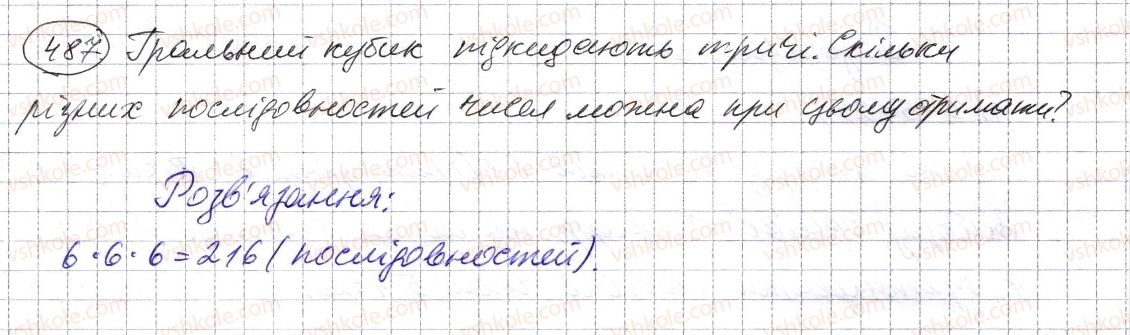 487 Гральний кубик підкидають тричі. Скільки
різних послідовностей чисел можна при цьому отримати?
Розв'язання:
6·6·6=216 (послідовностей).